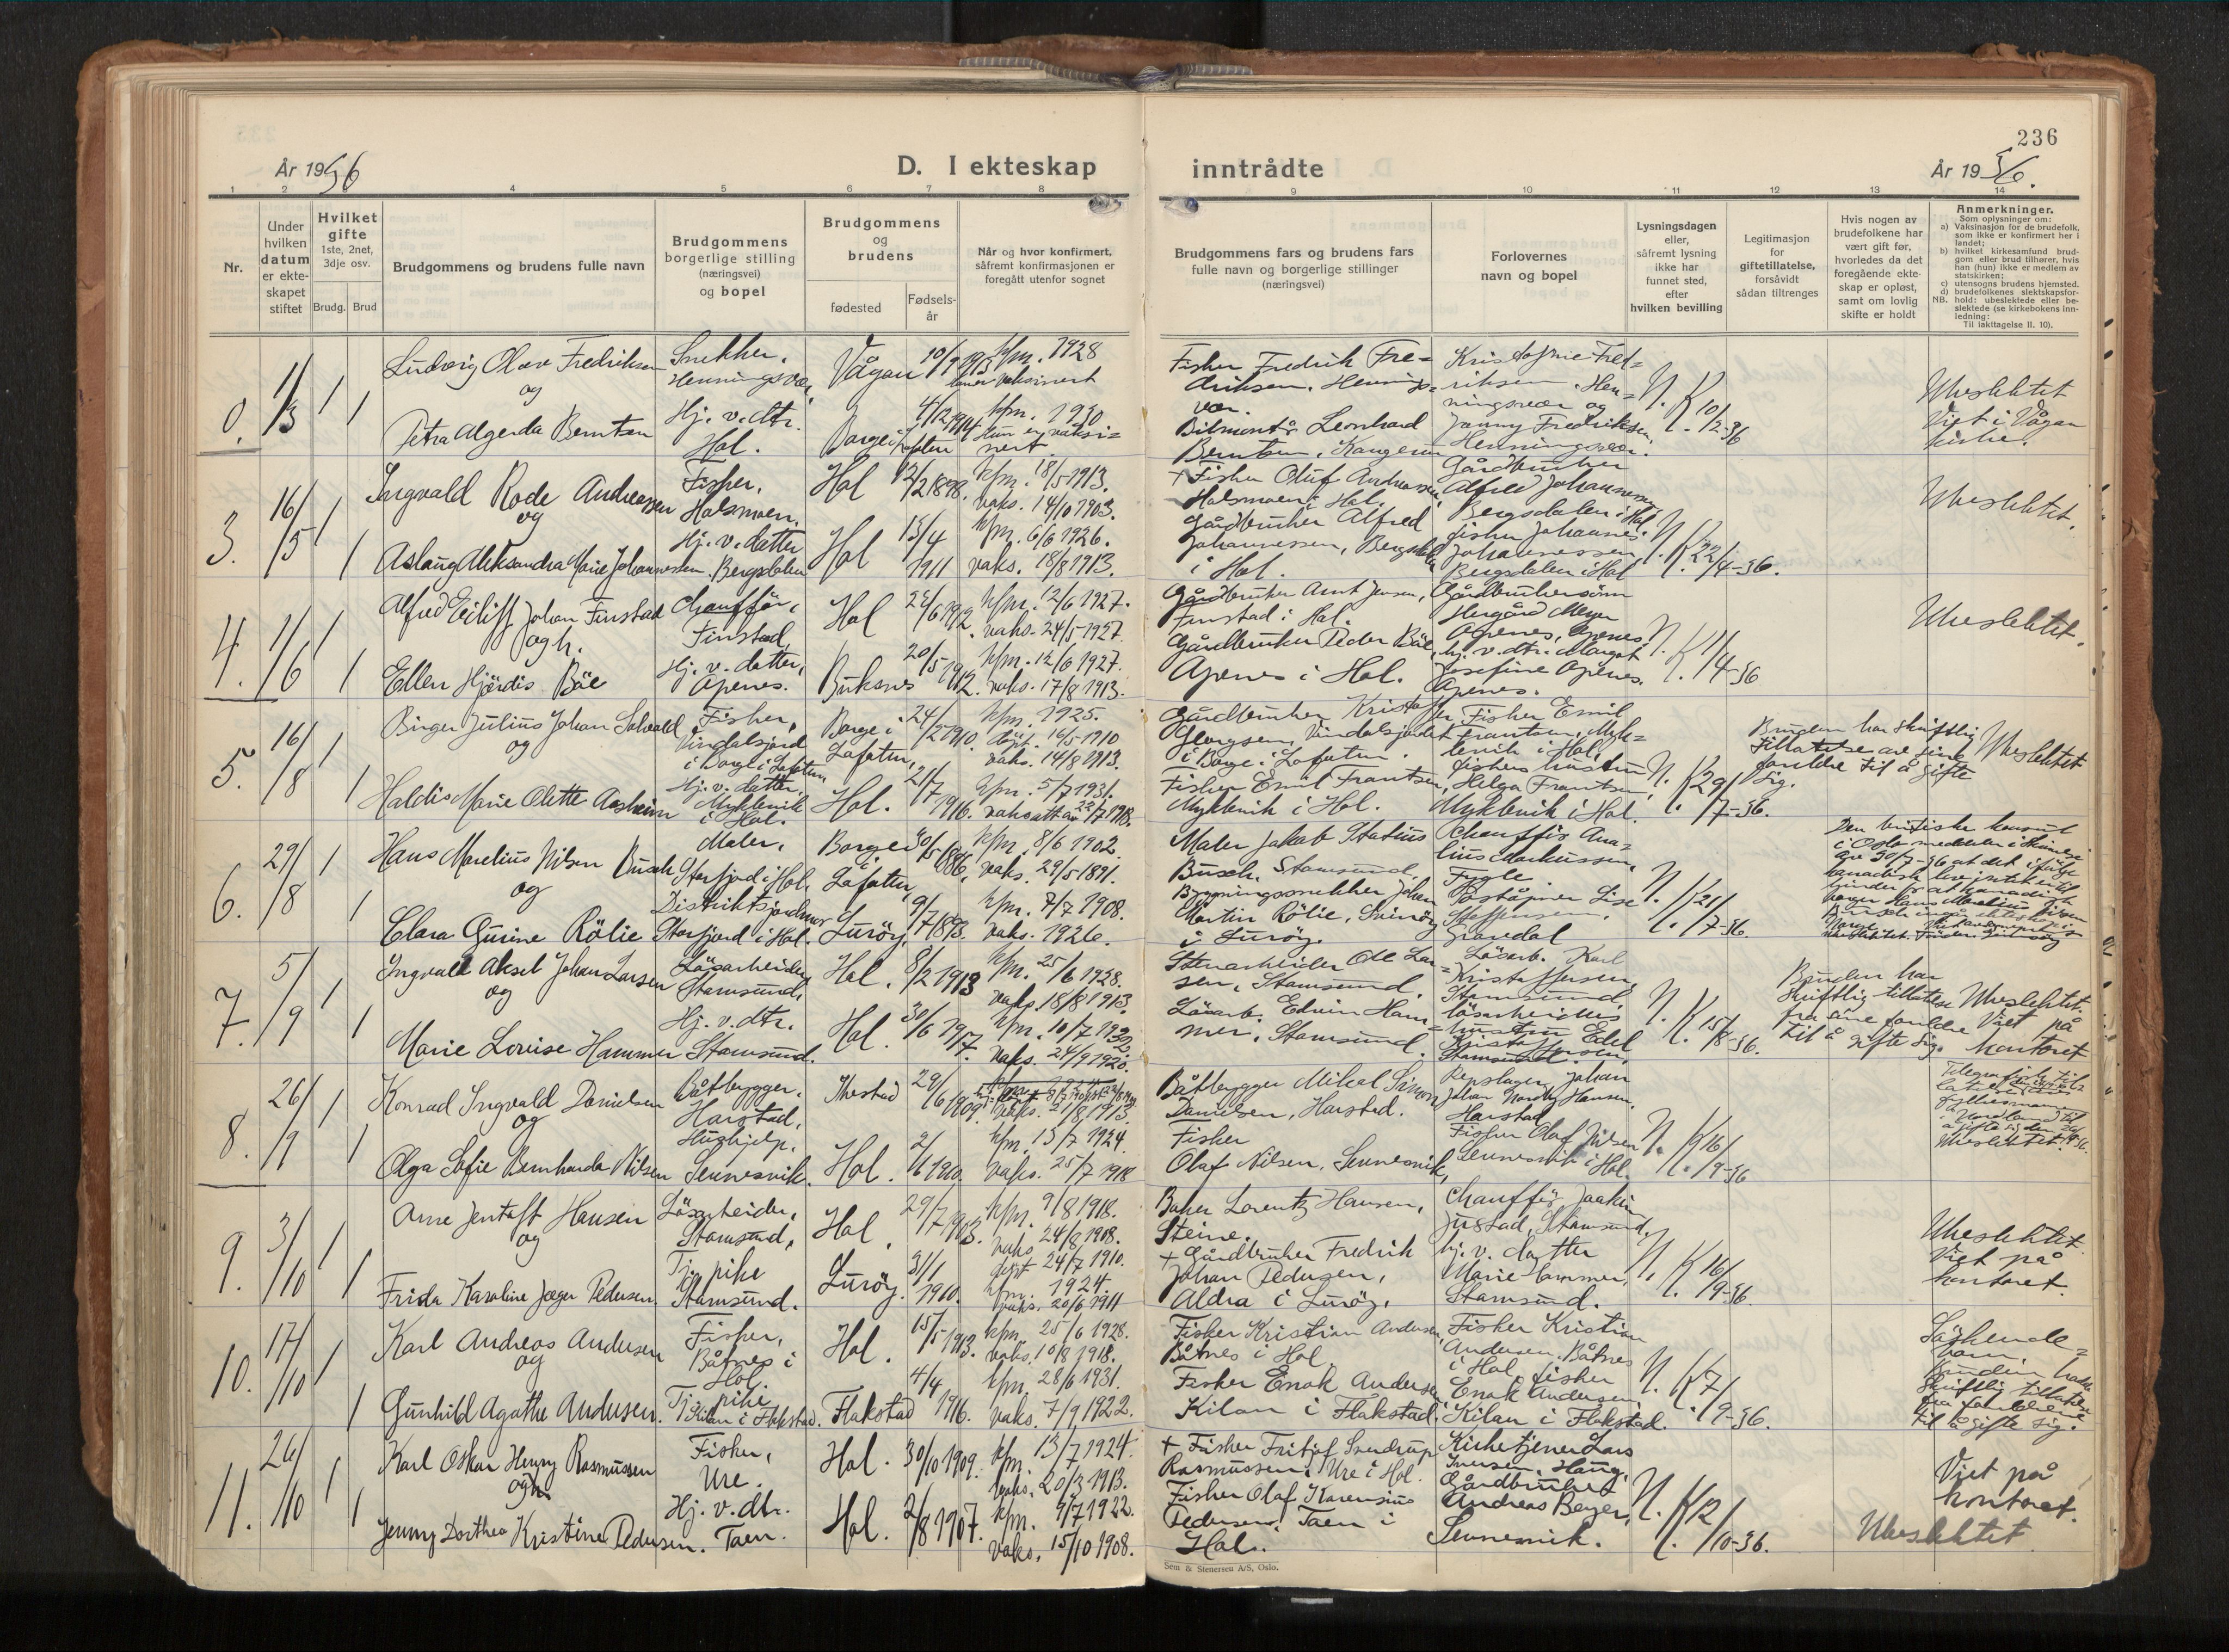 236
År 1936
D. I ekteskap
inntrådte
År 1936.
1 2 3 4 5 6 7 8 9 10 11 12 13 14
Nr.
Under hvilken datum er ekteskapet stiftet
Hvilket gifte
1ste, 2net, 3dje osv.
Brudg. Brud
Brudgommens og brudens fulle navn
Brudgommens borgerlige stilling (næringsvei) og bopel
Brudgommens og brudens
fødested
Fødselsår
Når og hvor konfirmert, såfremt konfirmasjonen er foregått utenfor sognet
Brudgommens fars og brudens fars fulle navn og borgerlige stillinger (næringsvei)
Forlovernes navn og bopel
Lysningsdagen eller, såfremt lysning ikke har funnet sted, efter hvilken bevilling
Legitimasjon for giftetillatelse, forsåvidt sådan tiltrenges
Hvis nogen av brudefolkene har vært gift før, hvorledes da det foregående ekteskap er opløst, samt om lovlig skifte er holdt
Anmerkninger.
Som oplysninger om:
a) Vaksinasjon for de brudefolk, som ikke er konfirmert her i landet;
b) hvilket kirkesamfund brudgom eller brud tilhører, hvis han (hun) ikke er medlem av statskirken;
c) utensogns brudens hjemsted.
d) brudefolkenes slektskapsforhold: ubeslektede eller beslektede (se kirkebokens innledning:
NB.
Til iakttagelse II. 10).
0. 1/3 1 1
Ludvig Olav Fredriksen
og
Petra Algerda Berntsen
Snekker,
Henningsvær,
Hj. v. dtr.
Hol.
Vågan 10/9 1913
kfm. 1928
Borge i Lofoten 4/12 1914
kfm. 1930
Hun er vaksinert.
Fisker Fredrik Fredriksen, Henningsvær.
Leonhard Berntsen,
Fredriksen, Henningsvær og
Jenny Fredriksen,
Henningsvær.
N. K. 10/2-36
Ubeslektet
Viet i Vågan kirke.
3. 16/5 1 1
Ingvald Rode Andreassen
og
Aslaug Aleksandra Marie Johannessen
Fisker,
Holsmoen.
Hj. v. datter
Bergsdalen
Hol 12/2 1898.
kfm. 18/5 1913.
vaks. 14/10 1903.
Hol 13/4 1911
kfm. 6/6 1926.
vaks. 18/8 1913.
+ Fisker Oluf Andreassen,
Holsmoen i Hol.
Gårdbruker Alfred
Johannessen, Bergsdalen
i Hol.
Gårdbruker
Alfred Johannessen,
Bergsdalen i Hol.
fisker Johannes
Johannessen,
Bergsdalen i Hol
N. K. 22/4-36.
Ubeslektet.
4. 1/6 1 1
Alfred Eilif Johan Finstad
og
Ellen Hjördis Båe
Chauffør,
Finstad
Hj. v. datter,
Apenes.
Hol 6 1912.
kfm. 12/6 1927.
vaks. 24/5 1927.
Buksnes 20/5 1912.
kfm. 12/6 1927.
vaks. 17/8 1913.
Gårdbruker Arnt Jensen,
Finstad i Hol.
Gårdbruker Peder Båe,
Apenes i Hol.
Gårdbrukersönn
Apenes, Apenes
hj. v. dtr. Margot
Josefine Apenes,
Apenes.
N. K. 1/4-36
Ubeslektet.
5. 16/8 1 1
Birger Julius Johan Solvald
og
Haldis Marie Olette Aasheim
Fisker,
Vindalsjord
i Borge i Lofoten
Hj. v. datter,
Myklevik
i Hol.
Borge i Lofoten, 24/2 1910.
kfm. 1925.
döpt. 16/5 1910
vaks. 14/8 1913.
Hol. 21/7 1916.
kfm. 5/7 1931.
vaksatt av 22/7 1918.
Gårdbruker Kristoffer
Georgsen, Vindalsjordet
i Borge i Lofoten.
Fisker Emil Frantsen,
Myklevik i Hol.
Fisker Emil
Frantsen, Myklevik i Hol,
fiskers hustru
Helga Frantsen,
Myklevik i Hol.
N. K. 29/7-36.
Bruden har skriftlig
tillatelse av sine
foreldre til å gifte
sig.
Ubeslektet
6. 29/8 1 1
Hans Marelius Nilsen Busch
og
Clara Gurine Rölie
Maler,
Storfjord i Hol.
Distriktsjordmor
Storfjord i Hol.
Borge i Lofoten, 30/5 1886,
kfm. 8/6 1902.
vaks. 29/5 1891.
Luröy, 9/7 1893.
kfm. 7/7 1908.
vaks. 1926.
Maler Jakob Statius
Busch, Stamsund.
Bygningssnekker Johan
Martin Rölie,
i Luröy.
Chauffør
Markussen,
Fygle
Lise
Steffensen,
Gravdal
N. K. 21/7-36.
Den britiske konsul
i Oslo meddeler i skrivelse
av 30/7-36 at det ifølge
kanadisk lov intet er til
hinder for at kanadisk
borger Hans Marelius Nilsen
Busch inngår ekteskap i
Norge.
7. 5/9 1 1
Ingvall Aksel Johan Larsen
og
Marie Lovise Hammer
Lösarbeider
Stamsund.
Hj. v. dtr.
Stamsund.
Hol. 8/2 1913
kfm. 25/6 1928.
vaks. 18/8 1913.
Hol. 30/6 1917.
kfm. 10/7 1932
vaks. 24/9 1920.
Stenarbeider Ole Larsen, Stamsund.
Lösarb. Edvin Hammer, Stamsund.
Lösarb. Karl
Kristoffersen,
Stamsund
lösarbeiders
hustru Edel
Kristoffersen,
Stamsund.
N. K. 15/8-36.
Bruden har
skriftlig tillatelse
fra sine foreldre
til å gifte sig.
Ubeslektet.
Viet på
kontoret
8. 26/9 1 1
Konrad Ingvald Danielsen
og
Olga Sofie Bernharda Nilsen
Båtbygger.
Harstad,
Hushjelp,
Sennesvik.
29/6 1909.
vaks. 21/8 1913.
Hol.
kfm. 13/7 1924.
vaks. 25/7 1918
Båtbygger Mikal Simon
Danielsen, Harstad.
Fisker
Olaf Nilsen, Sennesvik,
Repslager Johan
Hansen,
Harstad
Fisker Olaf Nilsen
Sennesvik i Hol.
N. K. 16/9-36
Ubeslektet.
9. 3/10 1 1
Arne Jentoft Hansen
og
Frida Karoline Jæger Pedersen.
Lösarbeider,
Stamsund,
Tj. pike
Stamsund.
Hol. 29/7 1903.
kfm. 9/8 1918.
vaks. 24/8 1908.
Luröy. 31/1 1910.
döpt 24/7 1910.
kfm. 1924.
vaks. 20/6 1911
Baker Lorentz Hansen,
Steine.
+ Gårdbruker Fredrik
Johan Pedersen,
Aldra i Luröy,
Chauffør Joakim
Justad, Stamsund,
hj. v. datter
Marie Hammer,
Stamsund.
N. K. 16/9-36.
Ubeslektet.
Viet på
kontoret.
10. 17/10 1 1
Karl Andreas Andersen
og
Gunhild Agathe Andersen.
Fisker,
Båtnes i
Hol.
Tj. pike
Kilan i Flakstad.
Hol. 15/5 1913.
kfm. 25/6 1928.
vaks. 10/8 1918.
Flakstad 4/4 1916.
kfm. 28/6 1931.
vaks. 7/9 1922.
Fisker Kristian Andersen,
Båtnes i Hol.
Fisker Enok Andersen
Kilan i Flakstad.
Fisker Kristian
Andersen, Båtnes
i Hol, fisker
Enok Andersen,
Kilan i Flakstad.
N. K. 7/9-36.
Söskendebarn.
Bruden hadde
skriftlig tillatelse
fra foreldrene
til å gifte sig.
11. 26/10 1 1
Karl Oskar Henry Rasmussen
og
Jenny Dorthea Kristine Pedersen.
Fisker,
Ure.
Hj. v. dtr.
Taen.
Hol. 30/10 1909.
kfm. 13/7 1924.
vaks. 20/3 1913.
Hol. 2/8 1907.
kfm. 9/7 1922.
vaks. 15/10 1908.
+ Fisker Fritjof Sverdrup
Rasmussen, Ure i Hol.
Fisker Olaf Karensius
Pedersen, Taen i
Hol.
Kirketjener Lars
Iversen, Haug,
Gårdbruker
Andreas Berger,
Sennesvik.
N. K. 12/10-36.
Viet på
kontoret.
Ubeslektet
Sem & Stenersen A/S, Oslo.